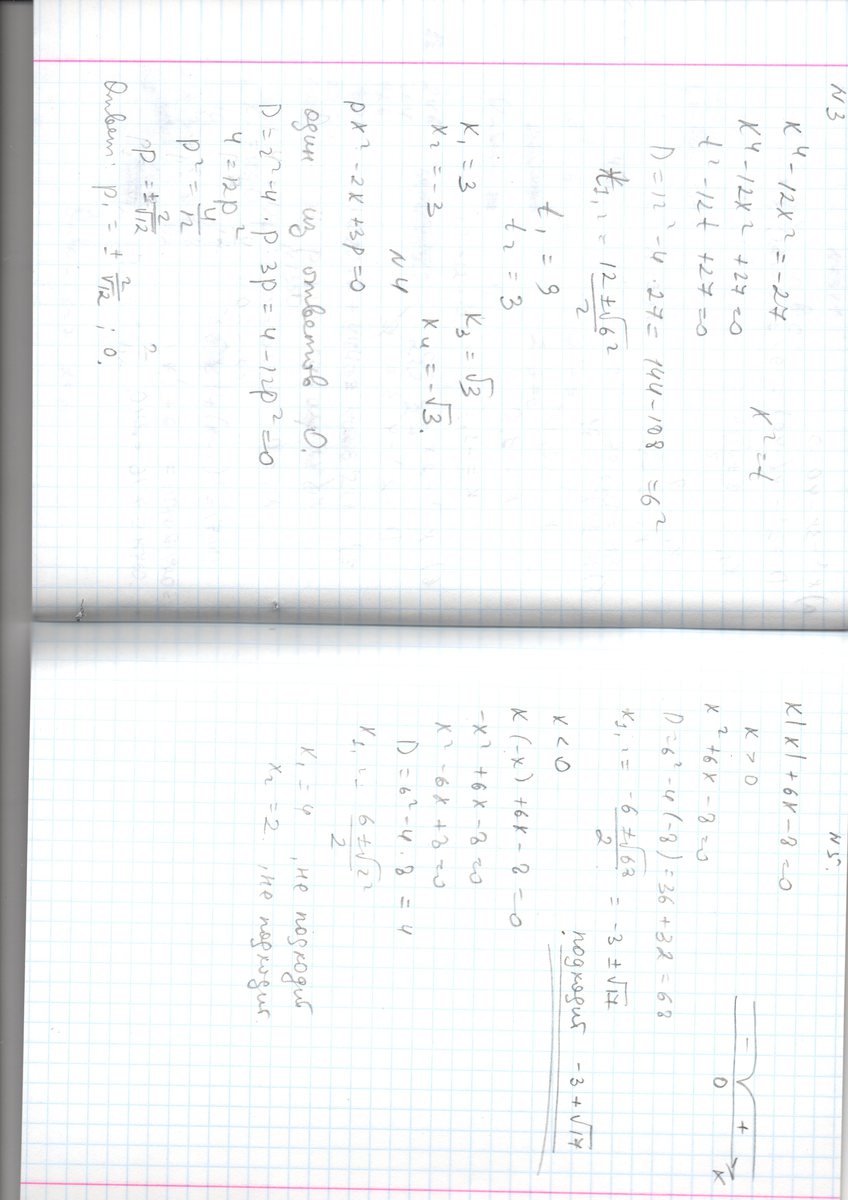 N3
x⁴ - 12x² = -27
x⁴ - 12x² + 27 = 0
x² = t
t² - 12t + 27 = 0
D = 12² - 4 · 27 = 144 - 108 = 6²
t₁,₂ = (12 ± √6²)/2
t₁ = 9
t₂ = 3
x₁ = 3 x₃ = √3
x₂ = -3 x₄ = -√3.
N4
px² - 2x + 3p = 0
один из ответов 0.
D = 2² - 4 · p 3p = 4 - 12p² = 0
4 = 12p²
p² = 4/12
p = ± 2/√12 ?
Ответ: p₁ = ± 2/√12 ; 0.
N5.
x|x| + 6x - 8 = 0
- + 0 x
x > 0
x² + 6x - 8 = 0
D = 6² - 4(-8) = 36 + 32 = 68
x₁,₂ = (-6 ± √68)/2 = -3 ± √17
подходит -3 + √17
x < 0
x(-x) + 6x - 8 = 0
-x² + 6x - 8 = 0
x² - 6x + 8 = 0
D = 6² - 4 · 8 = 4
x₁,₂ = (6 ± √2²)/2
x₁ = 4, не подходит
x₂ = 2, не подходит.